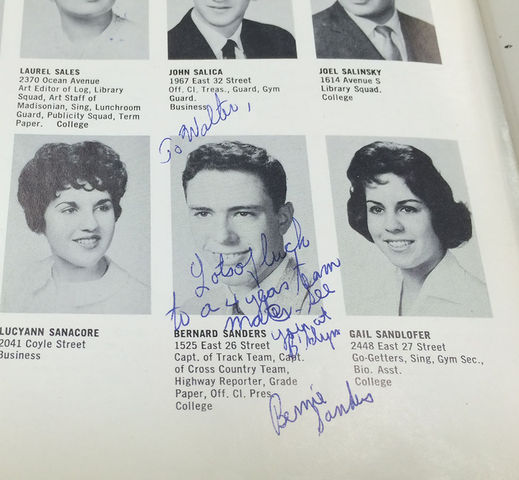 LAUREL SALES
2370 Ocean Avenue
Art Editor of Log, Library
Squad, Art Staff of
Madisonian, Sing, Lunchroom
Guard, Publicity Squad, Term
Paper. College
JOHN SALICA
1967 East 32 Street
Off. Cl. Treas., Guard, Gym
Guard.
Business
JOEL SALINSKY
1614 Avenue S
Library Squad.
College
To Walter,
Lots of luck
to a 4 years team
mate. See
you at
B'klyn
LUCYANN SANACORE
2041 Coyle Street
Business
BERNARD SANDERS
1525 East 26 Street
Capt. of Track Team, Capt.
of Cross Country Team,
Highway Reporter, Grade
Paper, Off. Cl. Pres.
College
Bernie
Sanders
GAIL SANDLOFER
2448 East 27 Street
Go-Getters, Sing, Gym Sec.,
Bio. Asst.
College